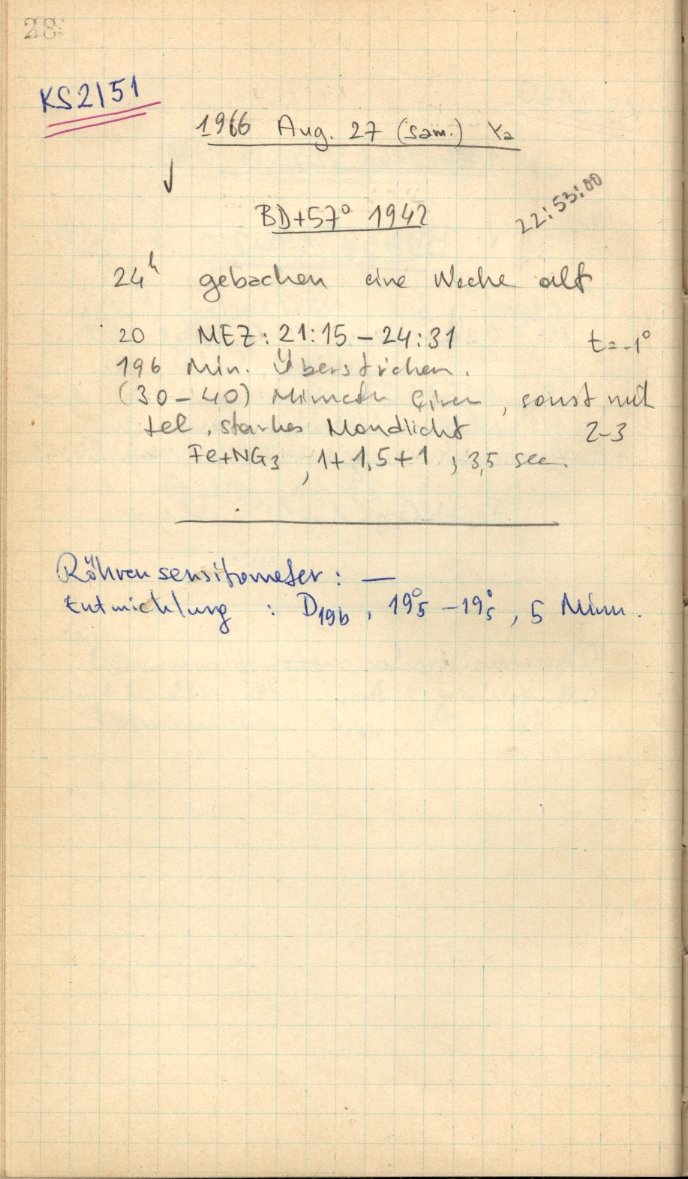 28
KS2151
1966 Aug. 27 (Sam.) Ya
BD+57° 1942
22:53:00
24h gebachen eine Woche alt
20 MEZ: 21:15 – 24:31 t=-1°
196 Min. Überstrichen.
(30–40) Minuten Cirren, sonst mit
tel, starkes Mondlicht 2-3
Fe+NG3, 1+1,5+1; 3,5 sec.
Röhrensensitometer: —
Entwicklung : D19b, 19°5 – 19°5, 5 Minn.